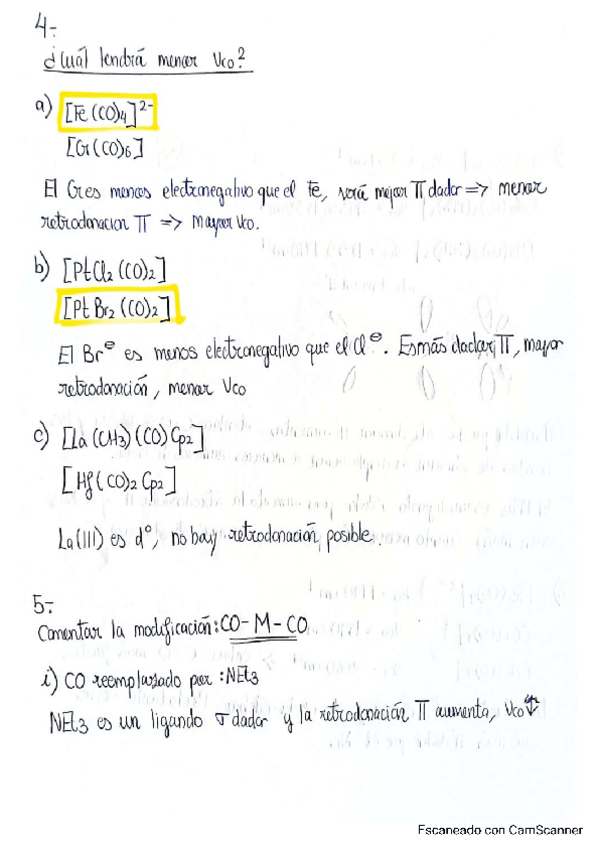 4-
¿Cuál tendrá menor νco?
a) [Fe(CO)4]²⁻
[Cr(CO)6]
El Cr es menos electronegativo que el Fe, será mejor π dador ⇒ menor
retrodonacion π ⇒ mayor νco.
b) [PtCl2(CO)2]
[PtBr2(CO)2]
El Br⊖ es menos electronegativo que el Cl⊖. Es más dador π, mayor
retrodonación, menor νco
c) [La(CH3)(CO)Cp2]
[Hf(CO)2Cp2]
La(III) es d⁰, no hay retrodonación posible.
5-
Comentar la modificación: CO-M-CO
i) CO reemplazado por :NEt3
NEt3 es un ligando σ dador y la retrodonación π aumenta, νco
Escaneado con CamScanner